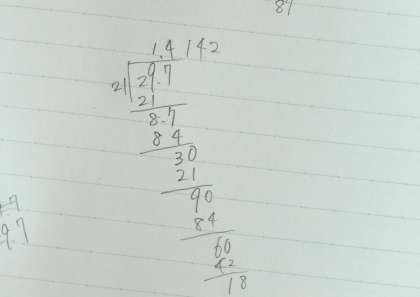 89
1.4 142
21 29.7
21
8.7
84
30
21
90
84
60
42
18
9.7